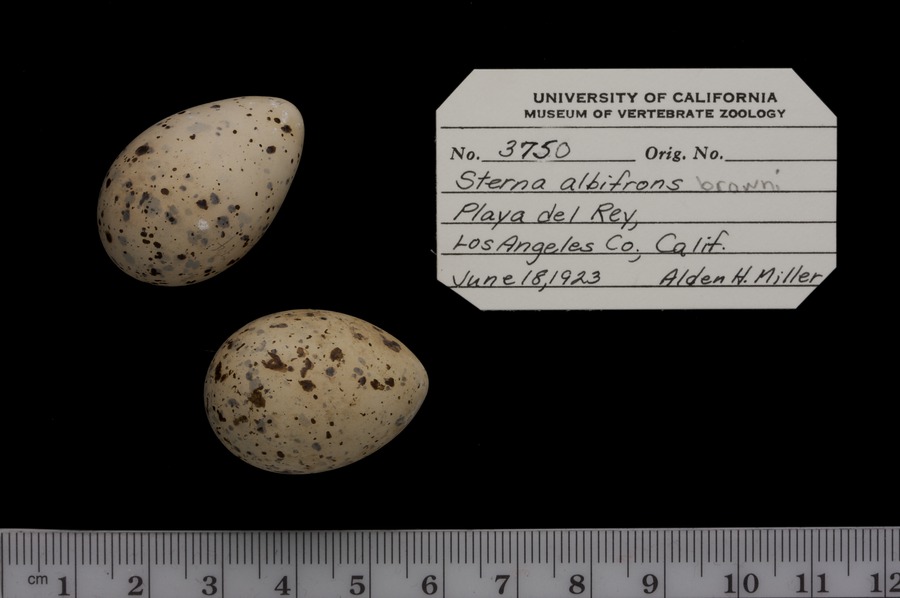 UNIVERSITY OF CALIFORNIA
MUSEUM OF VERTEBRATE ZOOLOGY
No. 3750 Orig. No.
Sterna albifrons browni
Playa del Rey,
Los Angeles Co., Calif.
June 18, 1923 Alden H. Miller
cm 1 2 3 4 5 6 7 8 9 10 11 12